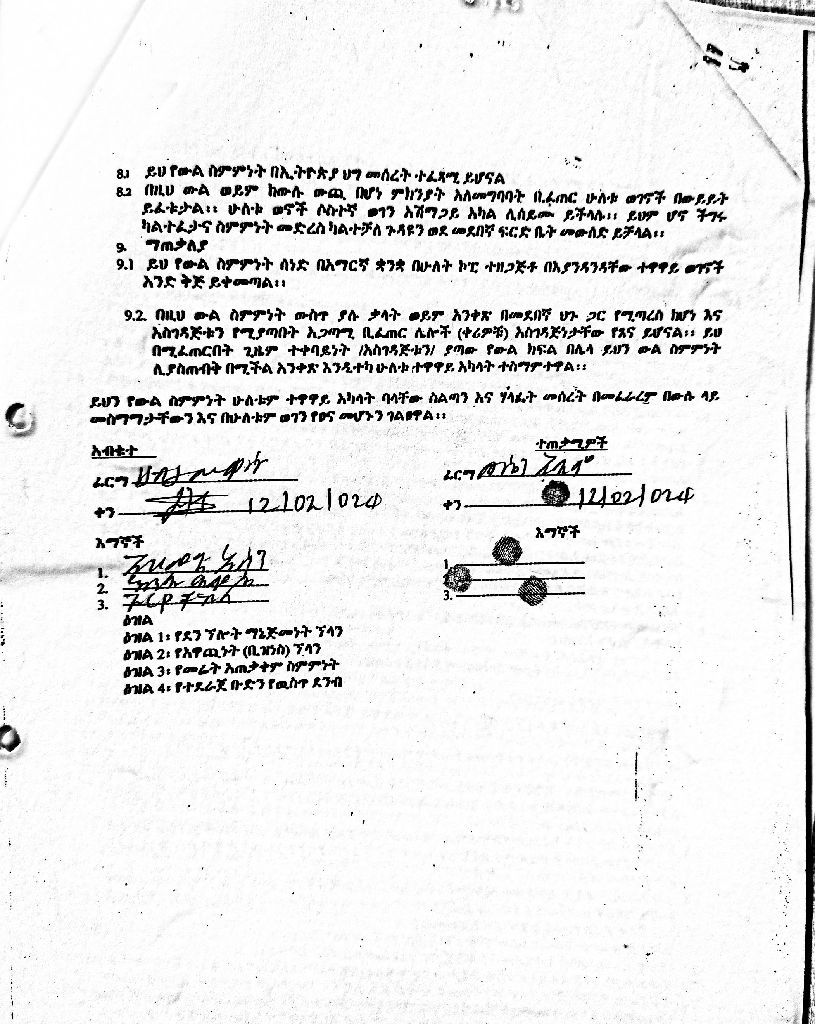 8.1 ይህ የውል ስምምነት በኢትዮጵያ ህግ መሰረት ተፈጻሚ ይሆናል
8.2 በዚህ ውል ወይም ከውሉ ውጪ በሆነ ምክንያት አለመግባባት ቢፈጠር ሁለቱ ወገኖች በውይይት
ይፈቱታል፡፡ ሁለቱ ወኖች ሶስተኛ ወገን አሸማጋይ አካል ሊሰይሙ ይችላሉ፡፡ ይህም ሆኖ ችግሩ
ካልተፈታና ስምምነት መድረስ ካልተቻለ ጉዳዩን ወደ መደበኛ ፍርድ ቤት መውሰድ ይቻላል፡፡
9. ማጠቃለያ
9.1 ይህ የውል ስምምነት ሰነድ በአማርኛ ቋንቋ በሁለት ኮፒ ተዘጋጅቶ በእያንዳንዳቸው ተዋዋይ ወገኖች
አንድ ቅጅ ይቀመጣል፡፡
9.2. በዚህ ውል ስምምነት ውስጥ ያሉ ቃላት ወይም አንቀጽ በመደበኛ ህጉ ጋር የሚጣረስ ከሆነ እና
አስገዳጅቱን የሚያጣበት አጋጣሚ ቢፈጠር ሌሎች (ቀሪዎቹ) አስገዳጅነታቸው የጸና ይሆናል፡፡ ይህ
በሚፈጠርበት ጊዜም ተቀባይነት /አስገዳጅቱን/ ያጣው የውል ክፍል በሌላ ይህን ውል ስምምነት
ሊያስጠብቅ በሚችል አንቀጽ እንዲተካ ሁለቱ ተዋዋይ አካላት ተስማምተዋል፡፡
ይህን የውል ስምምነት ሁለቱም ተዋዋይ አካላት ባላቸው ስልጣን እና ሃላፊት መሰረት በመፈራረም በውሉ ላይ
መስማማታቸውን እና በሁለቱም ወገን የፀና መሆኑን ገልፀዋል፡፡
አብቁተ ተጠቃሚዎች
ፊርማ ፊርማ
ቀን 12/02/024 ቀን 12/02/024
እማኞች እማኞች
1. 1.
2. 2.
3. 3.
ዕዝል
ዕዝል 1፡ የደን ኘሎት ማኔጅመነት ኘላን
ዕዝል 2፡ የአዋጪነት (ቢዝነስ) ኘላን
ዕዝል 3፡ የመሬት አጠቃቀም ስምምነት
ዕዝል 4፡ የተደራጀ ቡድን የዉስጥ ደንብ